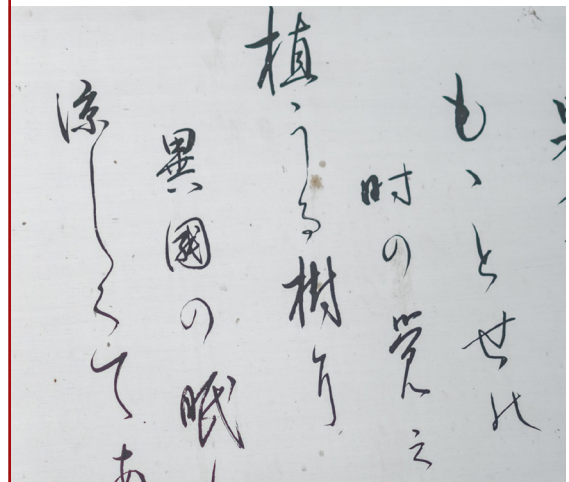 もゝとせの
時の覚え
植うる樹
異國の眠
涼しくて